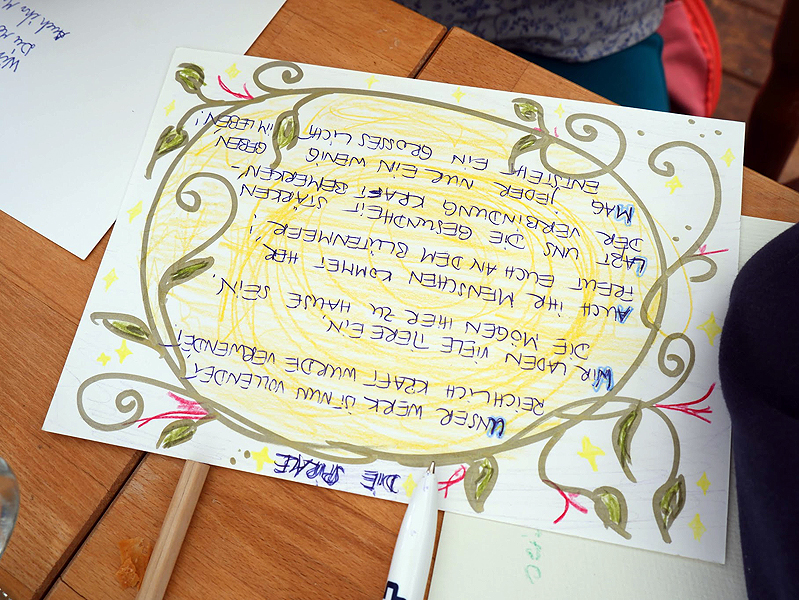 DIE SPIRALE
UNSER WERK IST NUN VOLLENDET
REICHLICH KRAFT WURDE VERWENDET!
WIR LADEN VIELE TIERE EIN,
DIE MÖGEN HIER ZU HAUSE SEIN.
AUCH IHR MENSCHEN KOMMET HER,
FREUT EUCH AN DEM BLÜTENMEER!
LAßT UNS DIE GESUNDHEIT STÄRKEN
DER VERBINDUNG KRAFT BEMERKEN,-
MAG JEDER NUR EIN WENIG GEBEN
ENTSTEHT EIN GROSSES LICHT IM LEBEN!
Auch ihr